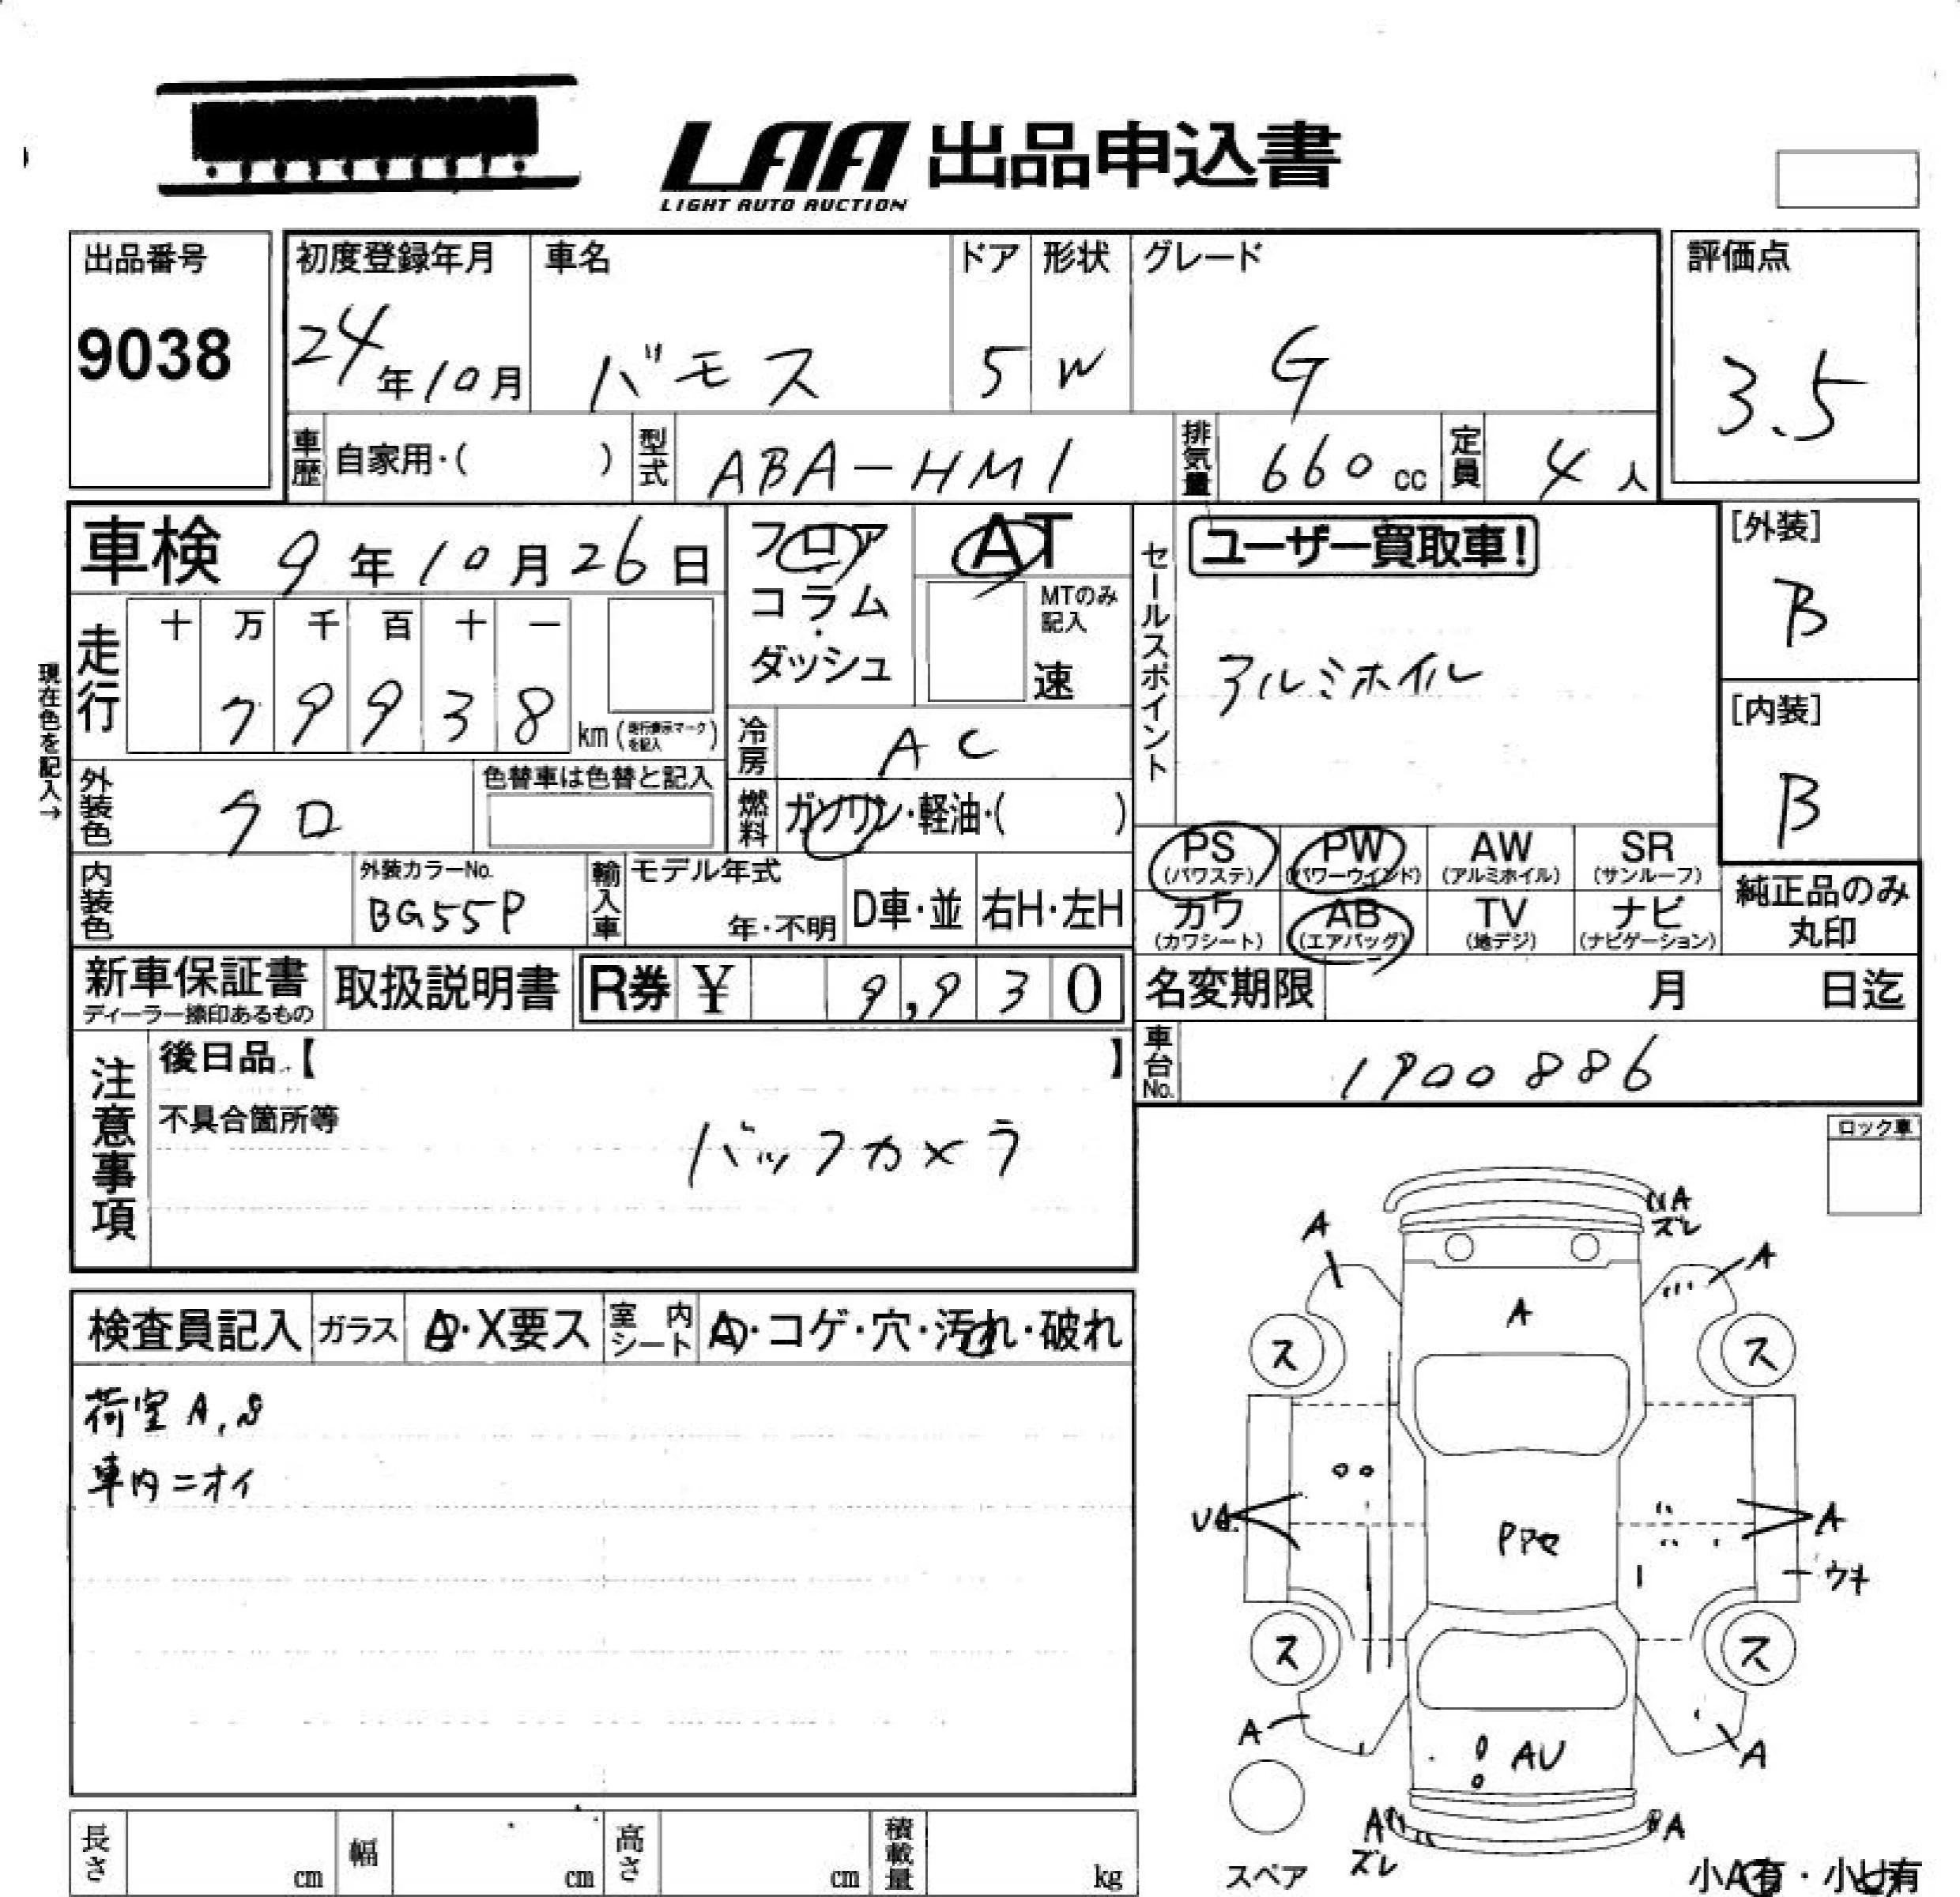 LAA 出品申込書
LIGHT AUTO AUCTION
出品番号
9038
初度登録年月
24年10月
車名
バモス
ドア
5
形状
W
グレード
G
評価点
3.5
車歴 自家用・( )
型式 ABA-HM1
排気量 660cc
定員 4人
車検 9年10月26日
フロア
コラム
・
ダッシュ
AT
MTのみ
記入
速
セールスポイント
ユーザー買取車!
アルミホイル
[外装]
B
[内装]
B
現在色を記入→
走行
十 万 千 百 十 一
7 9 9 3 8 km (走行表示マークを記入)
冷房 AC
外装色 クロ
色替車は色替と記入
燃料 ガソリン・軽油・( )
PS (パワステ)
PW (パワーウインド)
AW (アルミホイル)
SR (サンルーフ)
カワ (カワシート)
AB (エアバッグ)
TV (地デジ)
ナビ (ナビゲーション)
純正品のみ
丸印
内装色
外装カラーNo.
BG55P
輸入車
モデル年式
年・不明
D車・並
右H・左H
新車保証書
ディーラー捺印あるもの
取扱説明書
R券 ¥ 9,930
名変期限 月 日迄
車台No. 1900886
注意事項
後日品【 】
不具合箇所等
バックカメラ
ロック車
検査員記入
ガラス A・X要ス
室内シート A・コゲ・穴・汚れ・破れ
荷室 A, S
車内ニオイ
A
ズレ
A
A
A
ス
ス
UA
PPセ
A
ウキ
ス
ス
A
AU
A
A
ズレ
A
スペア
小A有・小U有
長さ cm
幅 cm
高さ cm
積載量 kg